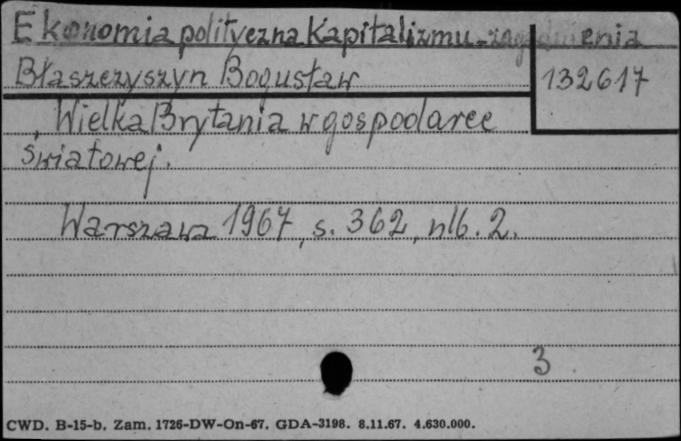 Ekonomia polityczna Kapitalizmu - zagadnienia
Błaszczyszyn Bogusław 132617
Wielka Brytania w gospodarce
światowej.
Warszawa 1967, s. 362, nlb. 2.
3
CWD. B-15-b. Zam. 1726-DW-On-67. GDA-3198. 8.11.67. 4.630.000.